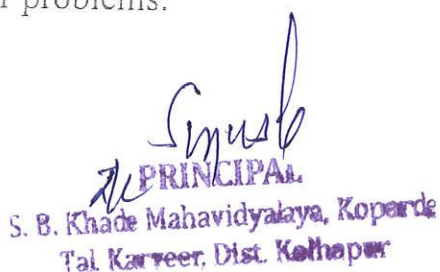 problems.
PRINCIPAL
S. B. Khade Mahavidyalaya, Koparde
Tal. Karveer, Dist. Kolhapur